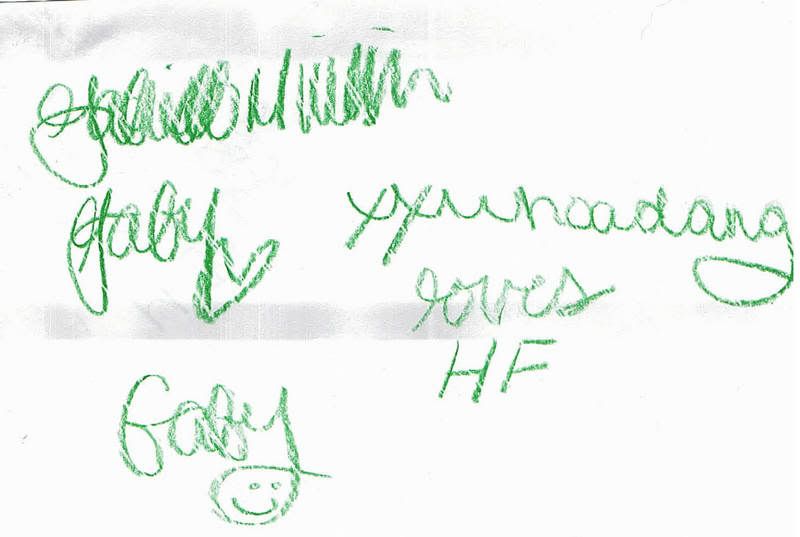 Gaby
xxunoadang
loves
HF
Gaby